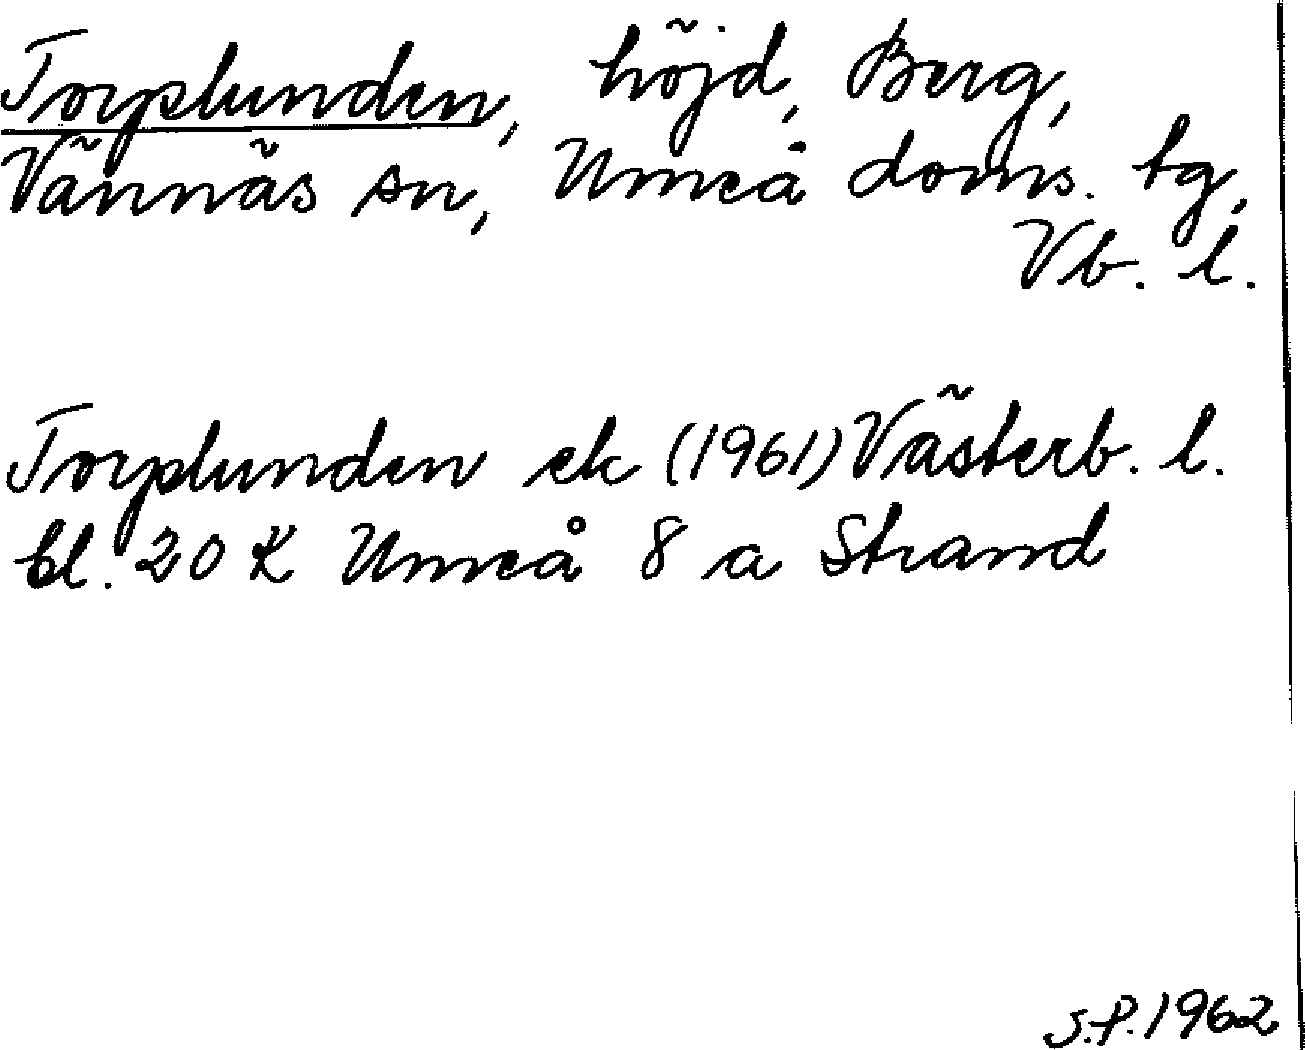 Torplunden, höjd, Berg,
Vännäs sn, Umeå doms. tg,
Vb. l.
Torplunden ek (1961) Västerb. l.
bl. 20 K Umeå 8 a Strand
S.P. 1962